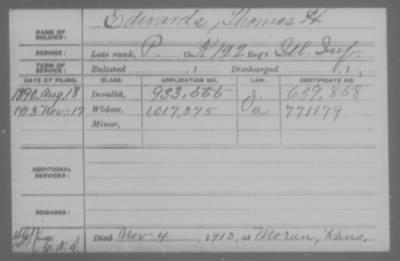 NAME OF SOLDIER: Edwards, Thomas H
SERVICE: Late rank, P. Co. K 192 Reg't Ill. Inf.
TERM OF SERVICE: Enlisted , 1 Discharged , 1
DATE OF FILING. CLASS. APPLICATION NO. LAW. CERTIFICATE NO.
1890 Aug. 18 Invalid, 933,555 657,858
1913 Nov. 17 Widow, 1,017,375 771179
Minor,
ADDITIONAL SERVICES:
REMARKS:
Died Nov 4, 1913, at Moran, Kans.